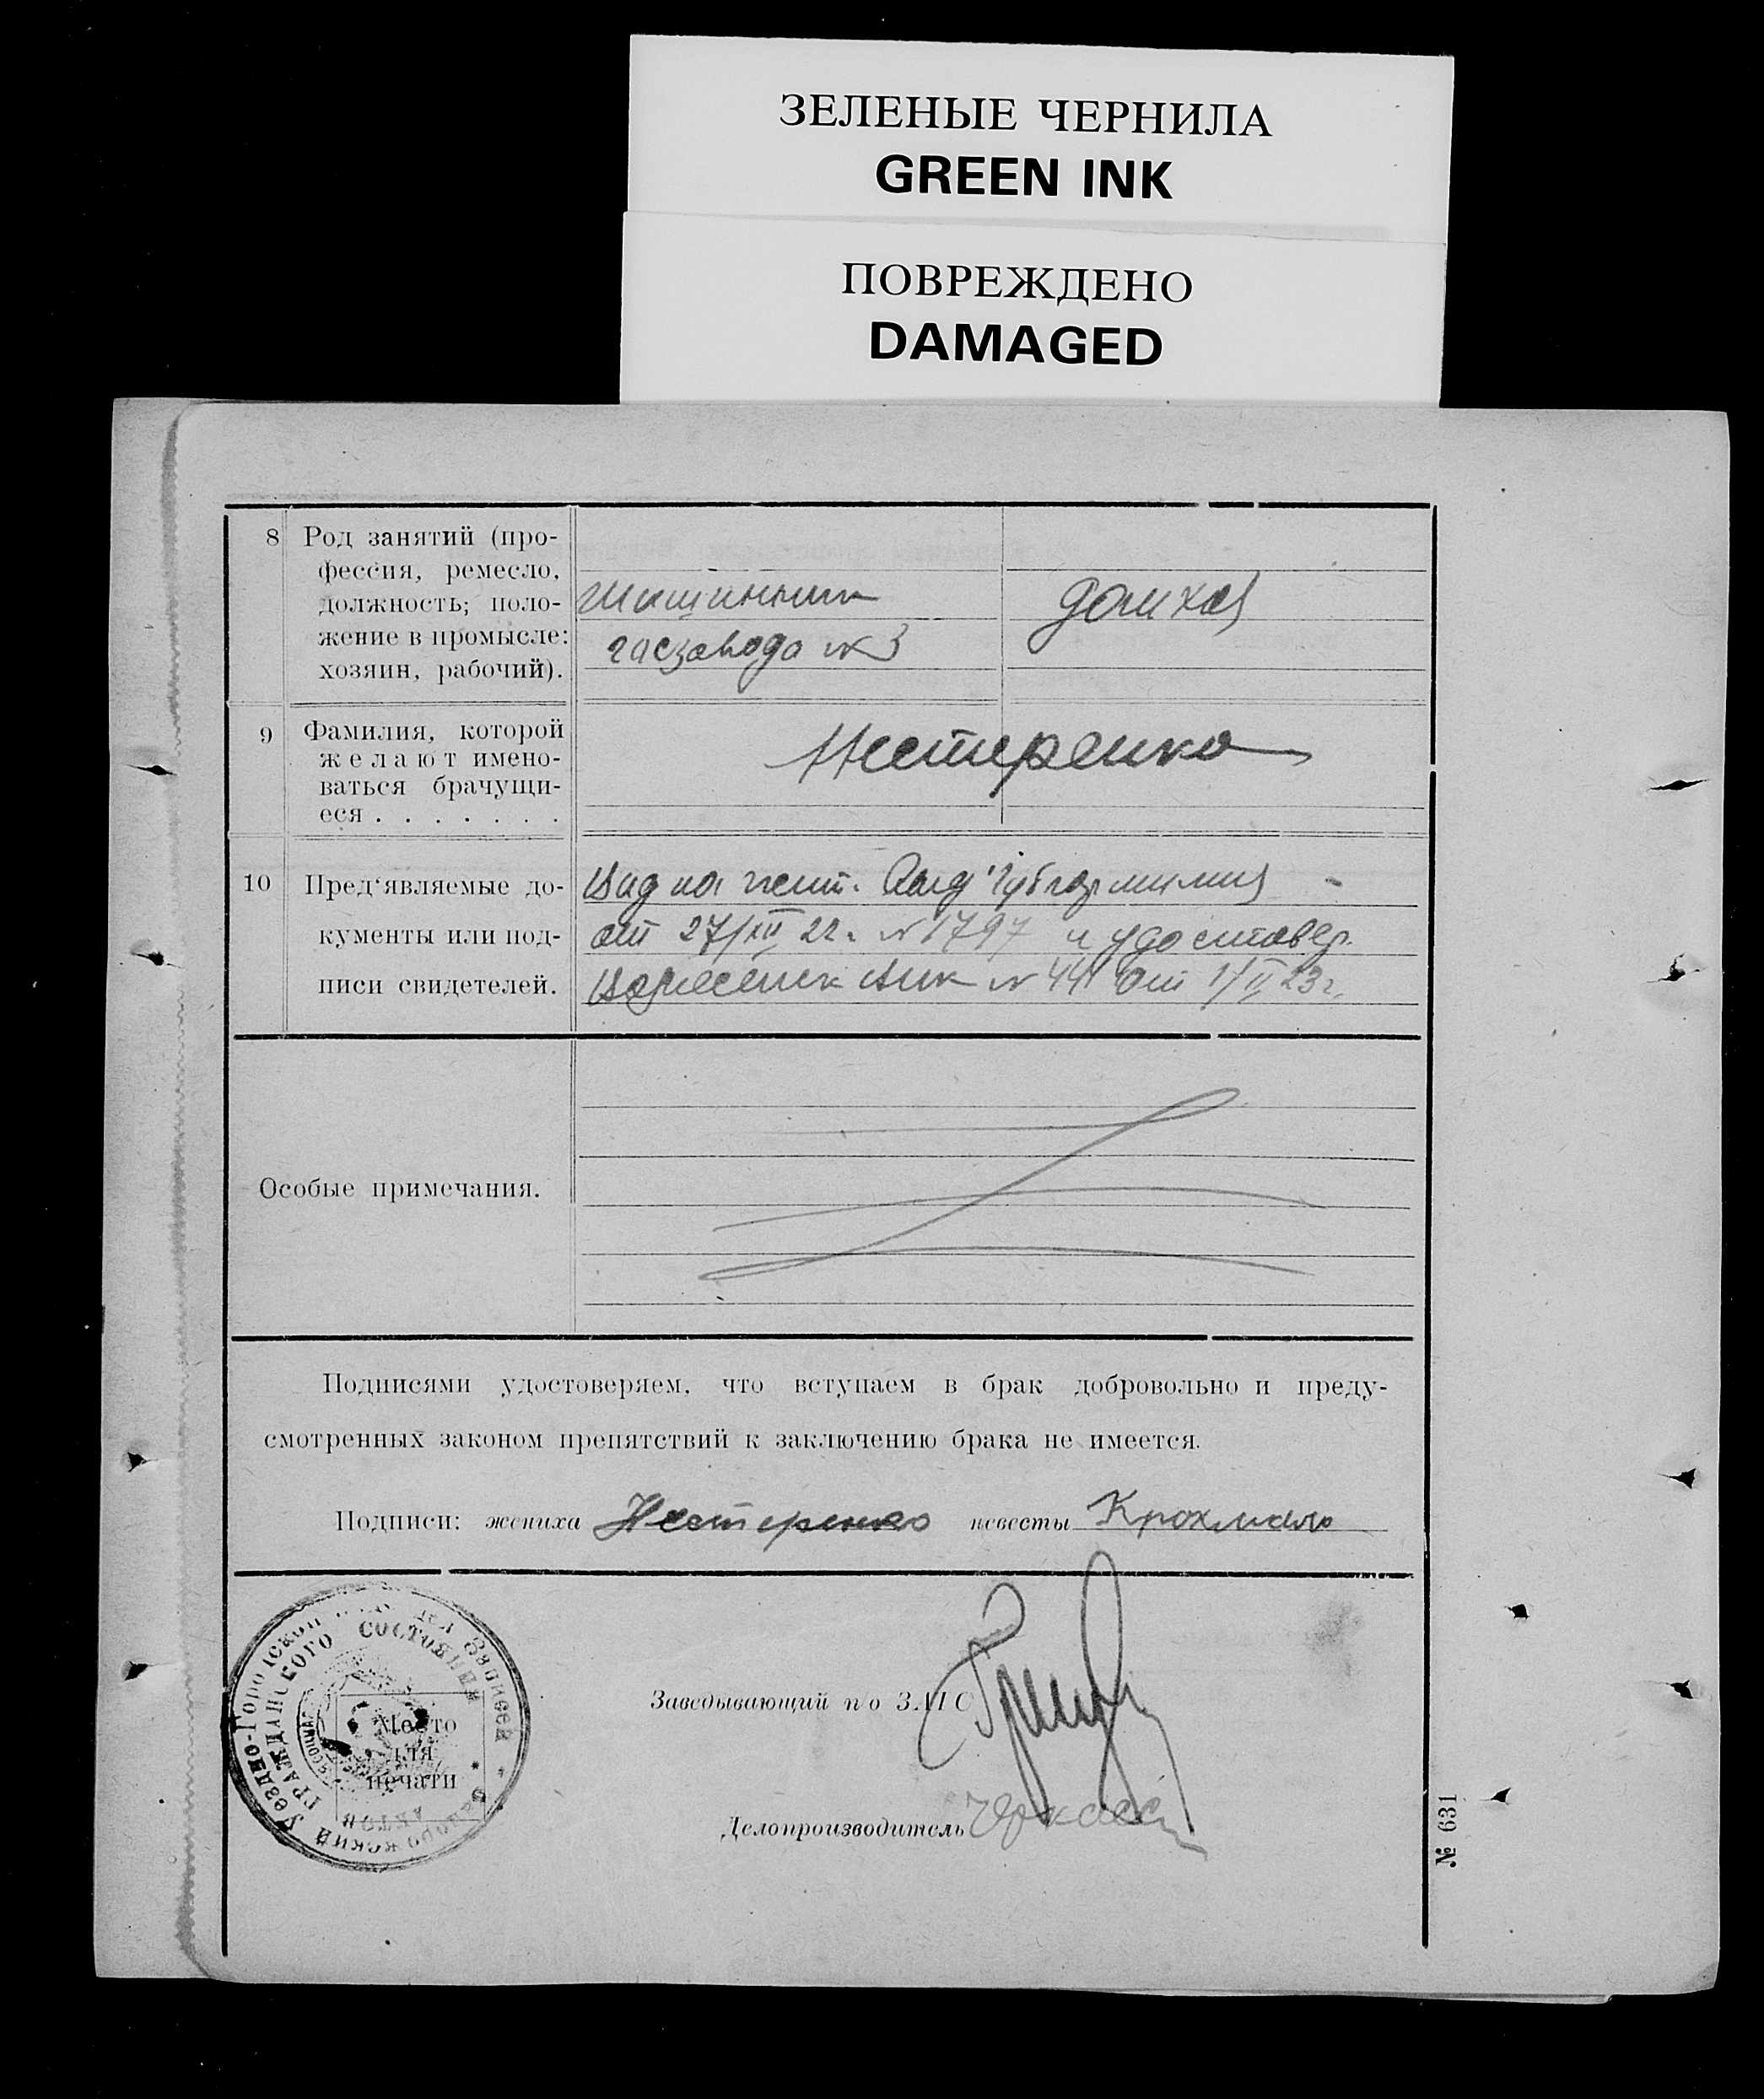 ЗЕЛЕНЫЕ ЧЕРНИЛА
GREEN INK
ПОВРЕЖДЕНО
DAMAGED
8 Род занятий (про-
фессия, ремесло,
должность; поло-
жение в промысле:
хозяин, рабочий).
госзавода № 3
домхоз
9 Фамилия, которой
желают имено-
ваться брачущи-
еся . . . . . . .
Нестеренко
10 Пред‘являемые до-
кументы или под-
писи свидетелей.
Вид на жит.
от 27/XII 22 г. № 1797 и удостовер.
№ 441 от 1/II 23 г.
Особые примечания.
Подписями удостоверяем, что вступаем в брак добровольно и преду-
смотренных законом препятствий к заключению брака не имеется.
Подписи: жениха Нестеренко невесты Крохмаль
Заведывающий по ЗАГС
Делопроизводитель
Уездно-Городской Записей
ГРАЖДАНСКОГО СОСТОЯНИЯ
АКТОВ
Место
для
печати
№ 631